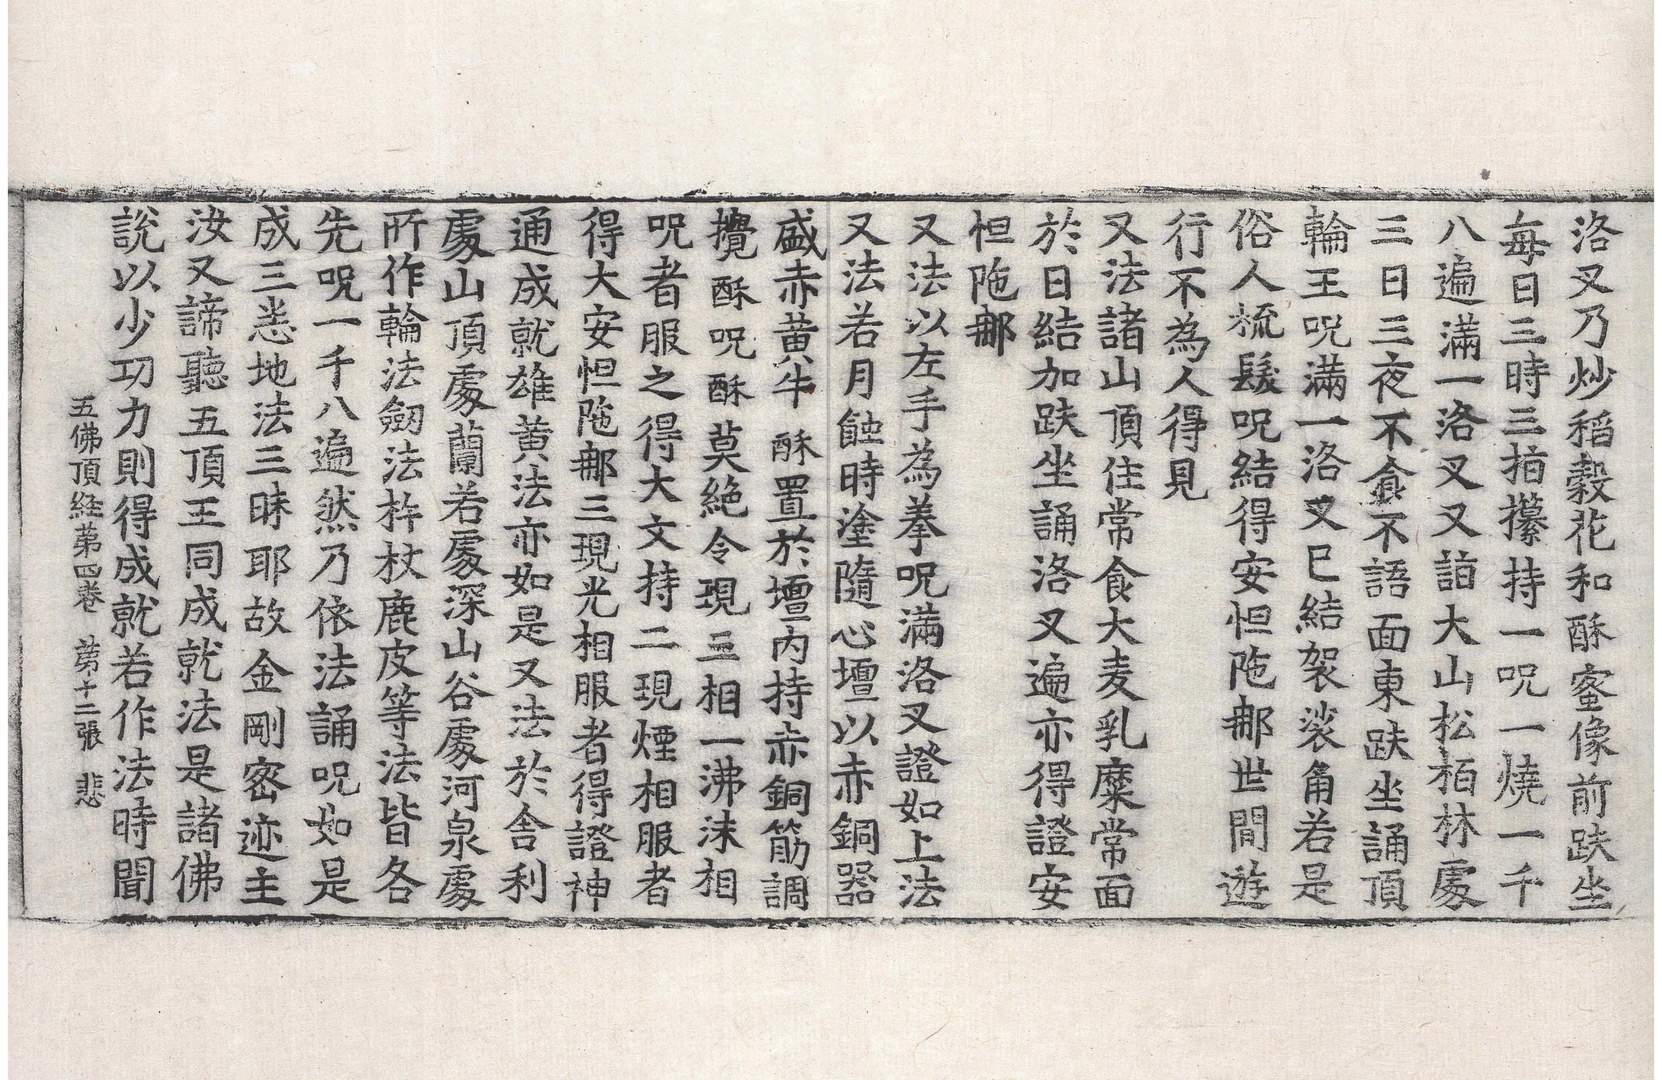 洛叉乃炒稻穀花和酥蜜像前趺坐
每日三時三拍攞持一呪一燒一千
八遍滿一洛叉又詣大山松栢林處
三日三夜不食不語面東趺坐誦頂
輪王呪滿一洛叉已結袈裟角若是
俗人梳髮呪結得安怛陁那世間遊
行不為人得見
又法諸山頂住常食大麦乳糜常面
於日結加趺坐誦洛叉遍亦得證安
怛陁那
又法以左手為拳呪滿洛叉證如上法
又法若月蝕時塗隨心壇以赤銅器
盛赤黄牛酥置於壇內持赤銅筋調
攪酥呪酥莫絶令現三相一沸沫相
呪者服之得大文持二現煙相服者
得大安怛陁那三現光相服者得證神
通成就雄黄法亦如是又法於舍利
處山頂處蘭若處深山谷處河泉處
所作輪法劒法杵杖鹿皮等法皆各
先呪一千八遍然乃依法誦呪如是
成三悉地法三昧耶故金剛密迹主
汝又諦聽五頂王同成就法是諸佛
說以少功力則得成就若作法時聞
五佛頂経苐四卷 苐十二張 悲